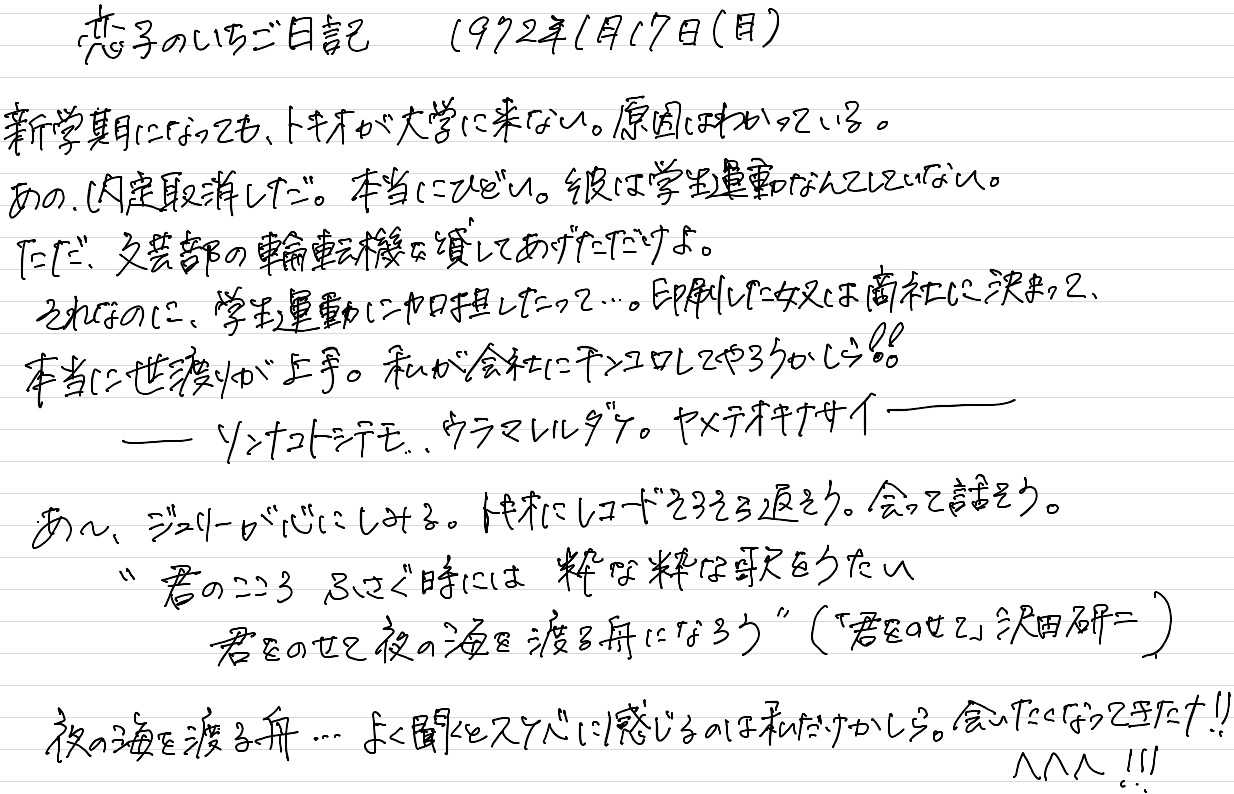 恋子のいちご日記 1972年1月17日(日)
新学期になっても、トキオが大学に来ない。原因はわかっている。
あの、内定取消しだ。本当にひどい。彼は学生運動なんてしていない。
ただ、文芸部の輪転機を貸してあげただけよ。
それなのに、学生運動に加担したって…。印刷した奴は商社に決まって、
本当に世渡りが上手。私が会社にチンコロしてやろうかしら!!
―― ソンナコトシテモ、、ウラマレルダケ。ヤメテオキナサイ ――
あ~、ジュリーが心にしみる。トキオにレコードそろそろ返そう。会って話そう。
〝君のこころ ふさぐ時には 粋な粋な歌をうたい
君をのせて夜の海を渡る舟になろう〟(「君をのせて」沢田研二)
夜の海を渡る舟… よく聞くとスケベに感じるのは私だけかしら。会いたくなってきたナ!!
へへへ!!!